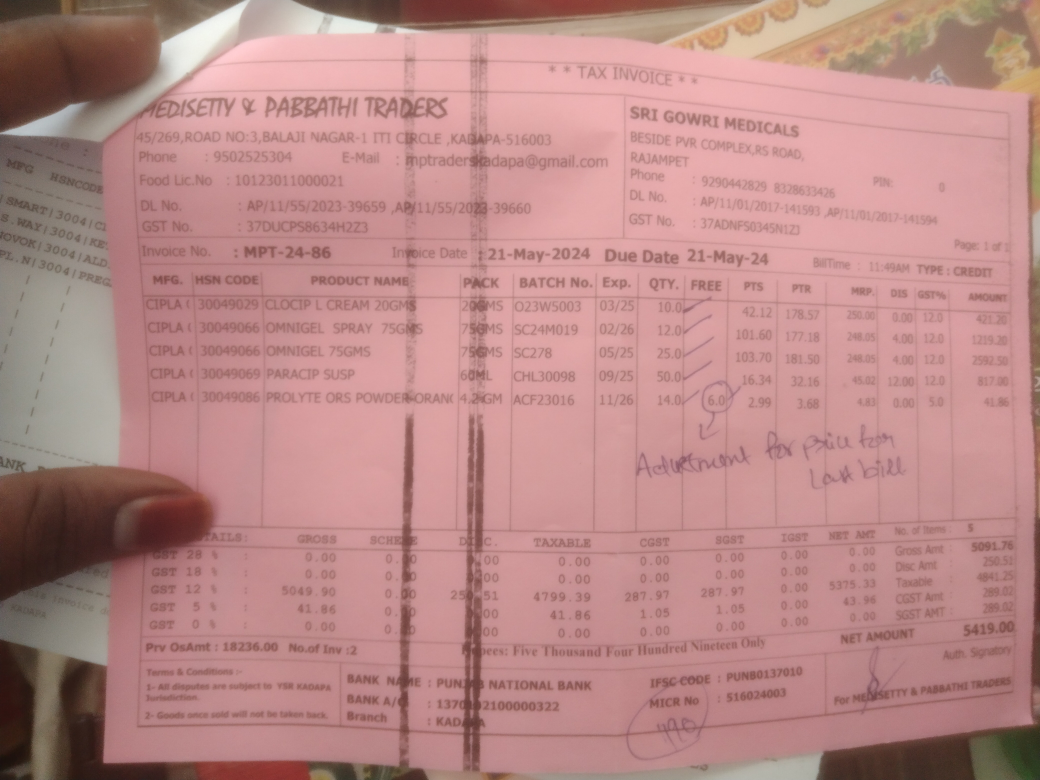 * * TAX INVOICE * *
MEDISETTY & PABBATHI TRADERS
45/269,ROAD NO:3,BALAJI NAGAR-1 ITI CIRCLE ,KADAPA-516003
Phone : 9502525304 E-Mail : mptraderskadapa@gmail.com
Food Lic.No : 10123011000021
DL No. : AP/11/55/2023-39659 ,AP/11/55/2023-39660
GST No. : 37DUCPS8634H2Z3
SRI GOWRI MEDICALS
BESIDE PVR COMPLEX,RS ROAD,
RAJAMPET
Phone : 9290442829 8328633426 PIN: 0
DL No. : AP/11/01/2017-141593 ,AP/11/01/2017-141594
GST No. : 37ADNFS0345N1ZJ
Page: 1 of 1
Invoice No. : MPT-24-86 Invoice Date : 21-May-2024 Due Date 21-May-24 BillTime : 11:49AM TYPE : CREDIT
MFG. HSN CODE PRODUCT NAME PACK BATCH No. Exp. QTY. FREE PTS PTR MRP. DIS GST% AMOUNT
CIPLA ( 30049029 CLOCIP L CREAM 20GMS 20GMS O23W5003 03/25 10.0 42.12 178.57 250.00 0.00 12.0 421.20
CIPLA ( 30049066 OMNIGEL SPRAY 75GMS 75GMS SC24M019 02/26 12.0 101.60 177.18 248.05 4.00 12.0 1219.20
CIPLA ( 30049066 OMNIGEL 75GMS 75GMS SC278 05/25 25.0 103.70 181.50 248.05 4.00 12.0 2592.50
CIPLA ( 30049069 PARACIP SUSP 60ML CHL30098 09/25 50.0 16.34 32.16 45.02 12.00 12.0 817.00
CIPLA ( 30049086 PROLYTE ORS POWDER ORAN( 4.2 GM ACF23016 11/26 14.0 6.0 2.99 3.68 4.83 0.00 5.0 41.86
Adjustment for price for
Last bill
TAILS: GROSS SCHEME DISC. TAXABLE CGST SGST IGST NET AMT
GST 28 % : 0.00 0.00 0.00 0.00 0.00 0.00 0.00 0.00
GST 18 % : 0.00 0.00 0.00 0.00 0.00 0.00 0.00 0.00
GST 12 % : 5049.90 0.00 250.51 4799.39 287.97 287.97 0.00 5375.33
GST 5 % : 41.86 0.00 0.00 41.86 1.05 1.05 0.00 43.96
GST 0 % : 0.00 0.00 0.00 0.00 0.00 0.00 0.00 0.00
No. of Items : 5
Gross Amt : 5091.76
Disc Amt : 250.51
Taxable : 4841.25
CGST Amt : 289.02
SGST AMT : 289.02
NET AMOUNT 5419.00
Prv OsAmt : 18236.00 No.of Inv :2 Rupees: Five Thousand Four Hundred Nineteen Only
Terms & Conditions :-
1- All disputes are subject to YSR KADAPA
Jurisdiction.
2- Goods once sold will not be taken back.
BANK NAME : PUNJAB NATIONAL BANK
BANK A/C
Branch : KADAPA
IFSC CODE : PUNB0137010
MICR No : 516024003
Auth. Signatory
For MEDISETTY & PABBATHI TRADERS
MFG HSNCODE
SMART|3004|
S.WAY|3004|
NOVOK|3004|ALD
PL.N|3004|PREG
KADAPA